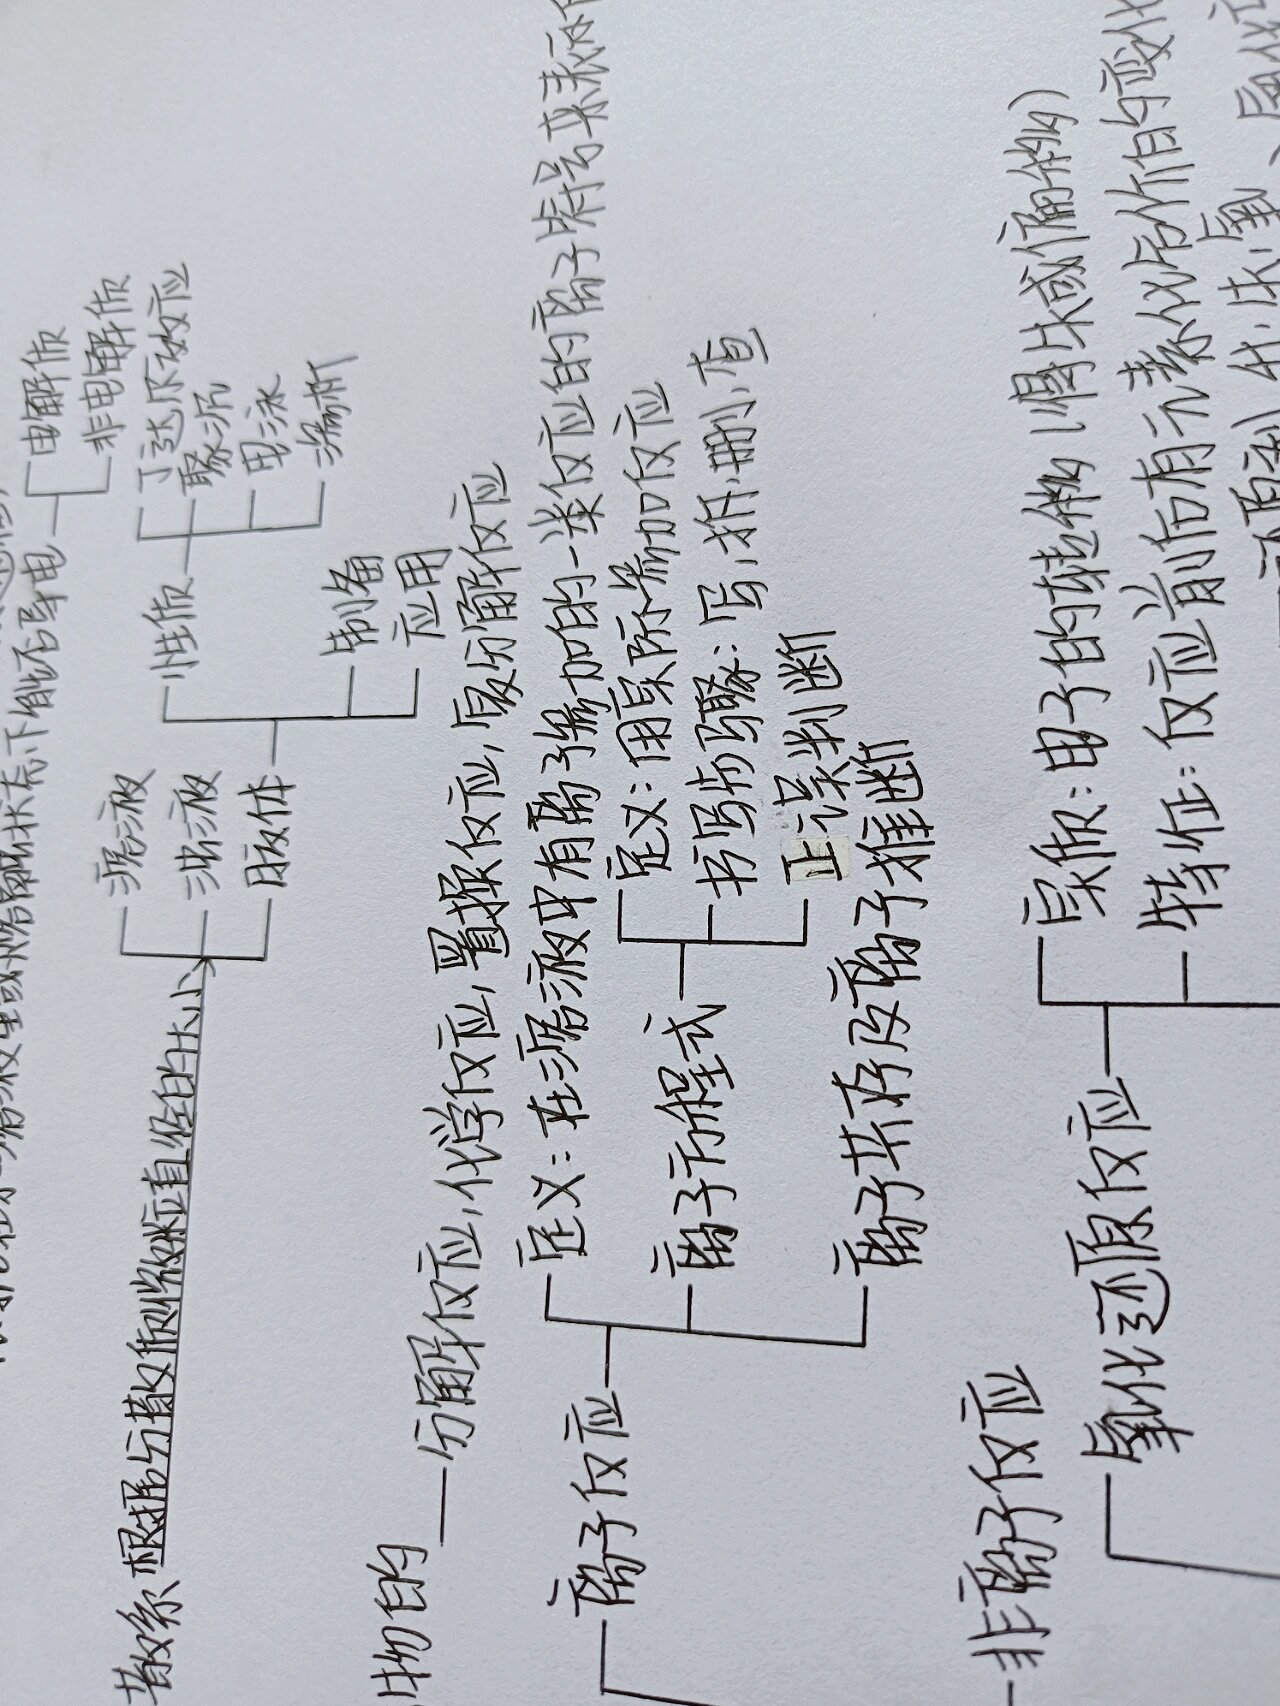 水溶液里或熔融状态下能否导电
电解质
非电解质
散系 根据分散质微粒直径的大小
溶液
浊液
胶体
性质
丁达尔效应
聚沉
电泳
渗析
制备
应用
物的
分解反应,化学反应,置换反应,复分解反应
离子反应
定义:在溶液中有离子参加的一类反应的离子符号来表示
离子方程式
定义:用实际参加反应
书写步骤:写,拆,删,查
正误判断
离子共存及离子推断
非离子反应
氧化还原反应
实质:电子的转移(得失或偏移)
特征:反应前后有元素化合价的变化